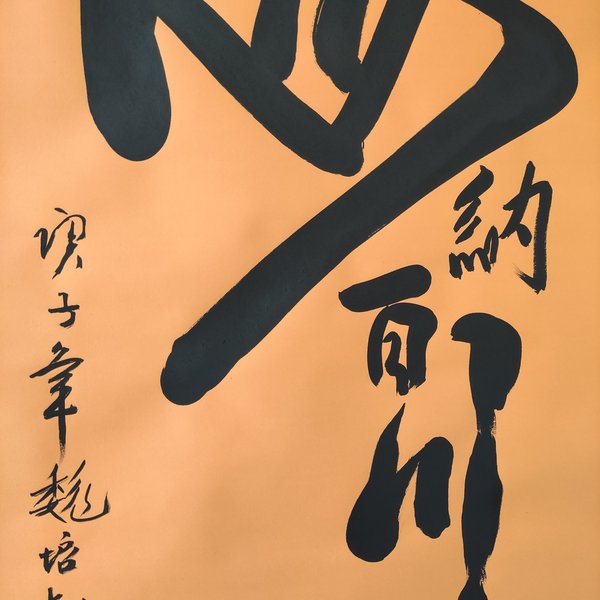 納百川
庚子年魏培